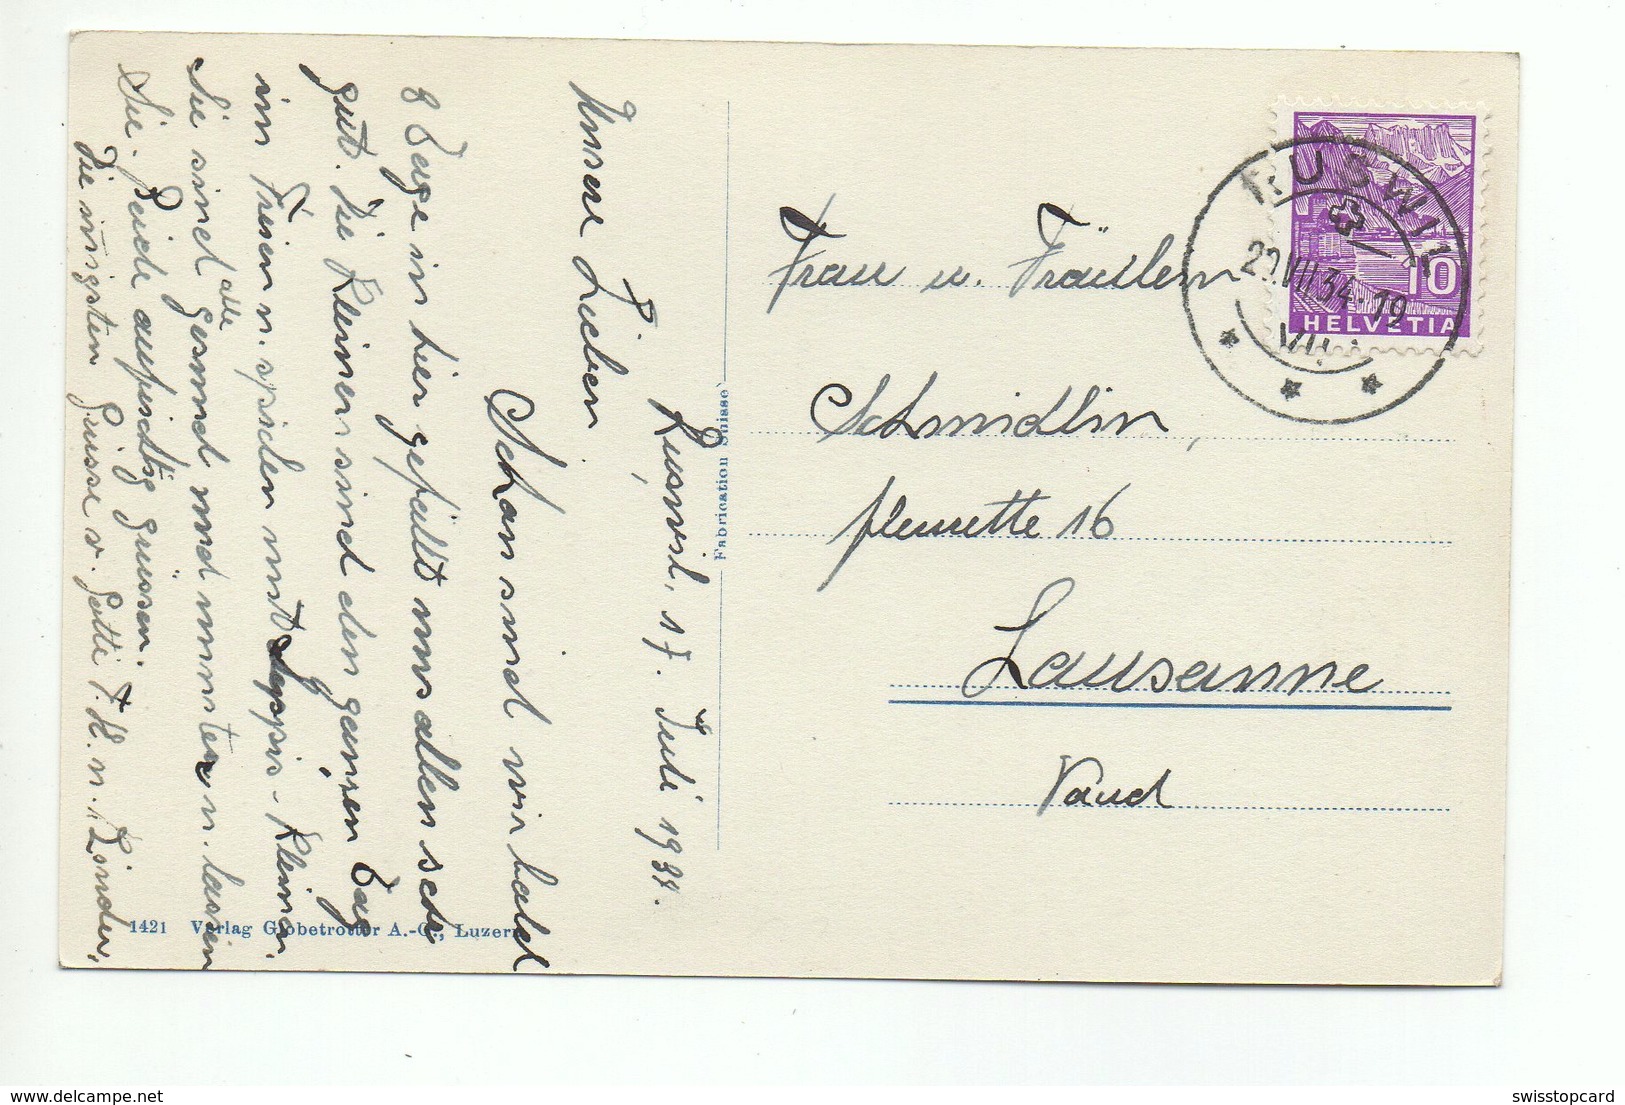 Ruswil, 17. Juli 1934.
Unsere Lieben
Schon sind wir bald
8 Tage in hier gefällt uns allen sehr
gut. Die Kleinen sind den ganzen Tag
im Freien u. spielen mit Seppis - Kleinen.
Sie sind alle gesund und munter u. lassen
Sie Beide aufrichtig grüssen.
Die innigsten Grüsse v. Götti F. H. u. Kinder.
Frau u. Fräulein
Schmidlin,
fleurette 16
Lausanne
Vaud
RUSWIL
20.VII.34-19
HELVETIA
10
Fabrication Suisse
1421 Verlag Globetrotter A.-G., Luzern
swisstopcard